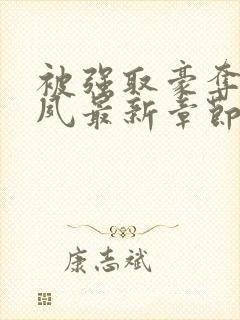 被强取豪夺
风最新章节
康志斌